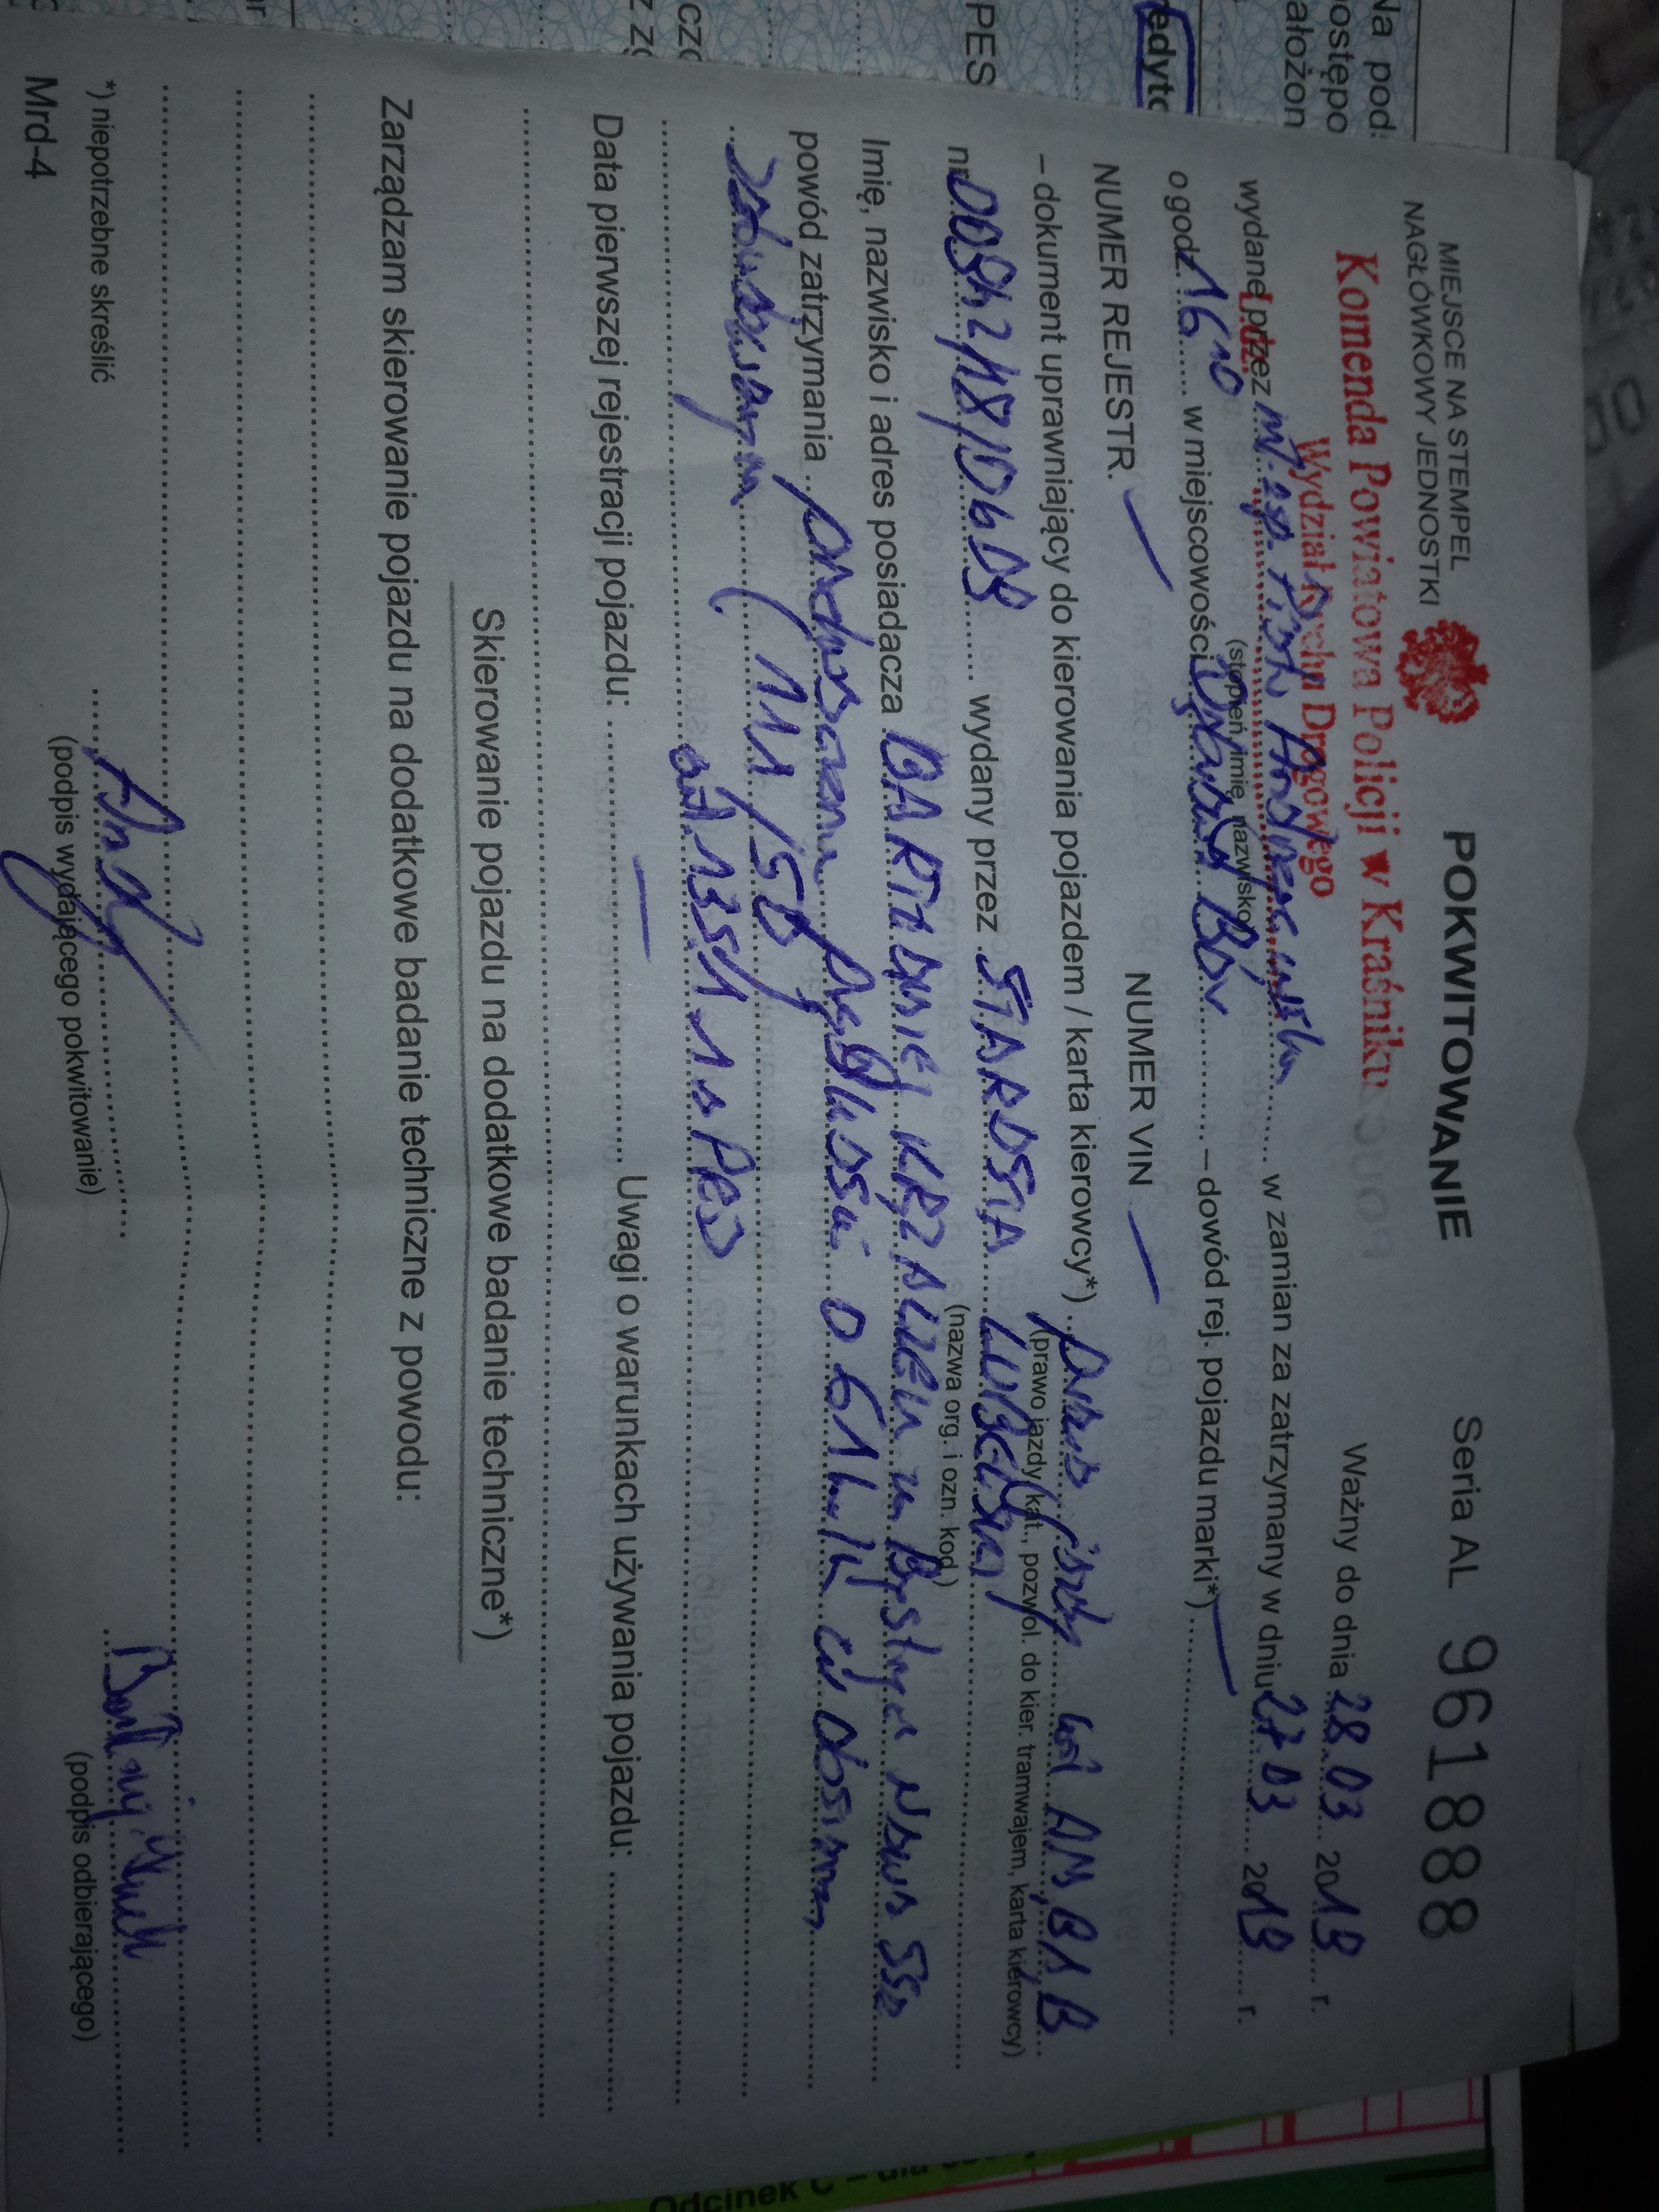 MIEJSCE NA STEMPEL
NAGŁÓWKOWY JEDNOSTKI
POKWITOWANIE
Seria AL 961888
Komenda Powiatowa Policji w Kraśniku
Wydział Ruchu Drogowego
Ważny do dnia 28.03 2019 r.
wydane przez m.asp. Piotr w zamian za zatrzymany w dniu 27 03 2019 r.
(stopień, imię, nazwisko)
o godz. 16 10 w miejscowości Dąbrowa Bór – dowód rej. pojazdu marki*)
NUMER REJESTR. NUMER VIN
– dokument uprawniający do kierowania pojazdem / karta kierowcy*) prawo jazdy kat AM, B1, B
(prawo jazdy kat., pozwol. do kier. tramwajem, karta kierowcy)
nr wydany przez STAROSTA LUBELSKI
(nazwa org. i ozn. kod)
Imię, nazwisko i adres posiadacza BARTŁOMIEJ
powód zatrzymania przekroczenie prędkości o 61 km/h na obszarze
zabudowanym (111/50)
Data pierwszej rejestracji pojazdu: Uwagi o warunkach używania pojazdu:
Skierowanie pojazdu na dodatkowe badanie techniczne*)
Zarządzam skierowanie pojazdu na dodatkowe badanie techniczne z powodu:
(podpis wydającego pokwitowanie)
(podpis odbierającego)
*) niepotrzebne skreślić
Mrd-4
Na pod
ałożon
PES
Odcinek C